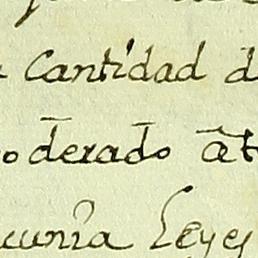 Cantidad d
oderado at
cunia Leyes